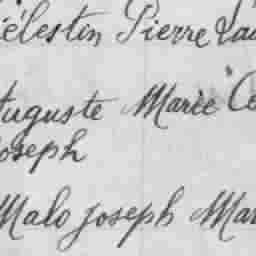 Célestin Pierre
Auguste Marie
Joseph
Malo Joseph